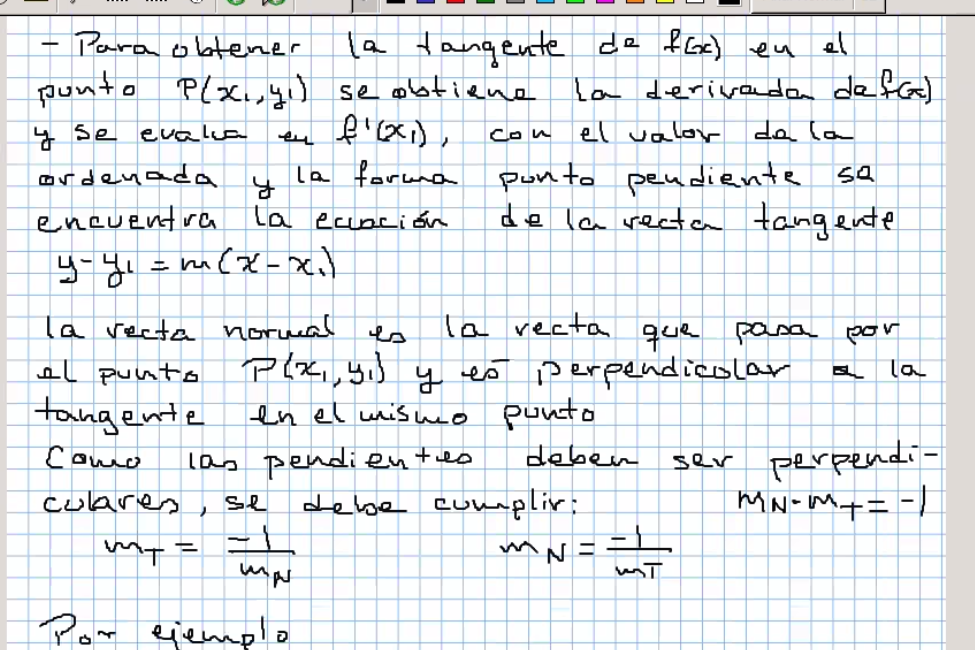 - Para obtener la tangente de f(x) en el
punto P(x₁,y₁) se obtiene la derivada de f(x)
y se evalua en f'(x₁), con el valor de la
ordenada y la forma punto pendiente se
encuentra la ecuación de la recta tangente
y-y₁ = m(x-x₁)
la recta normal es la recta que pasa por
el punto P(x₁,y₁) y es perpendicolar a la
tangente en el mismo punto
Como las pendientes deben ser perpendi-
culares, se debe cumplir: m_N·m_T = -1
m_T = -1/m_N m_N = -1/m_T
Por ejemplo